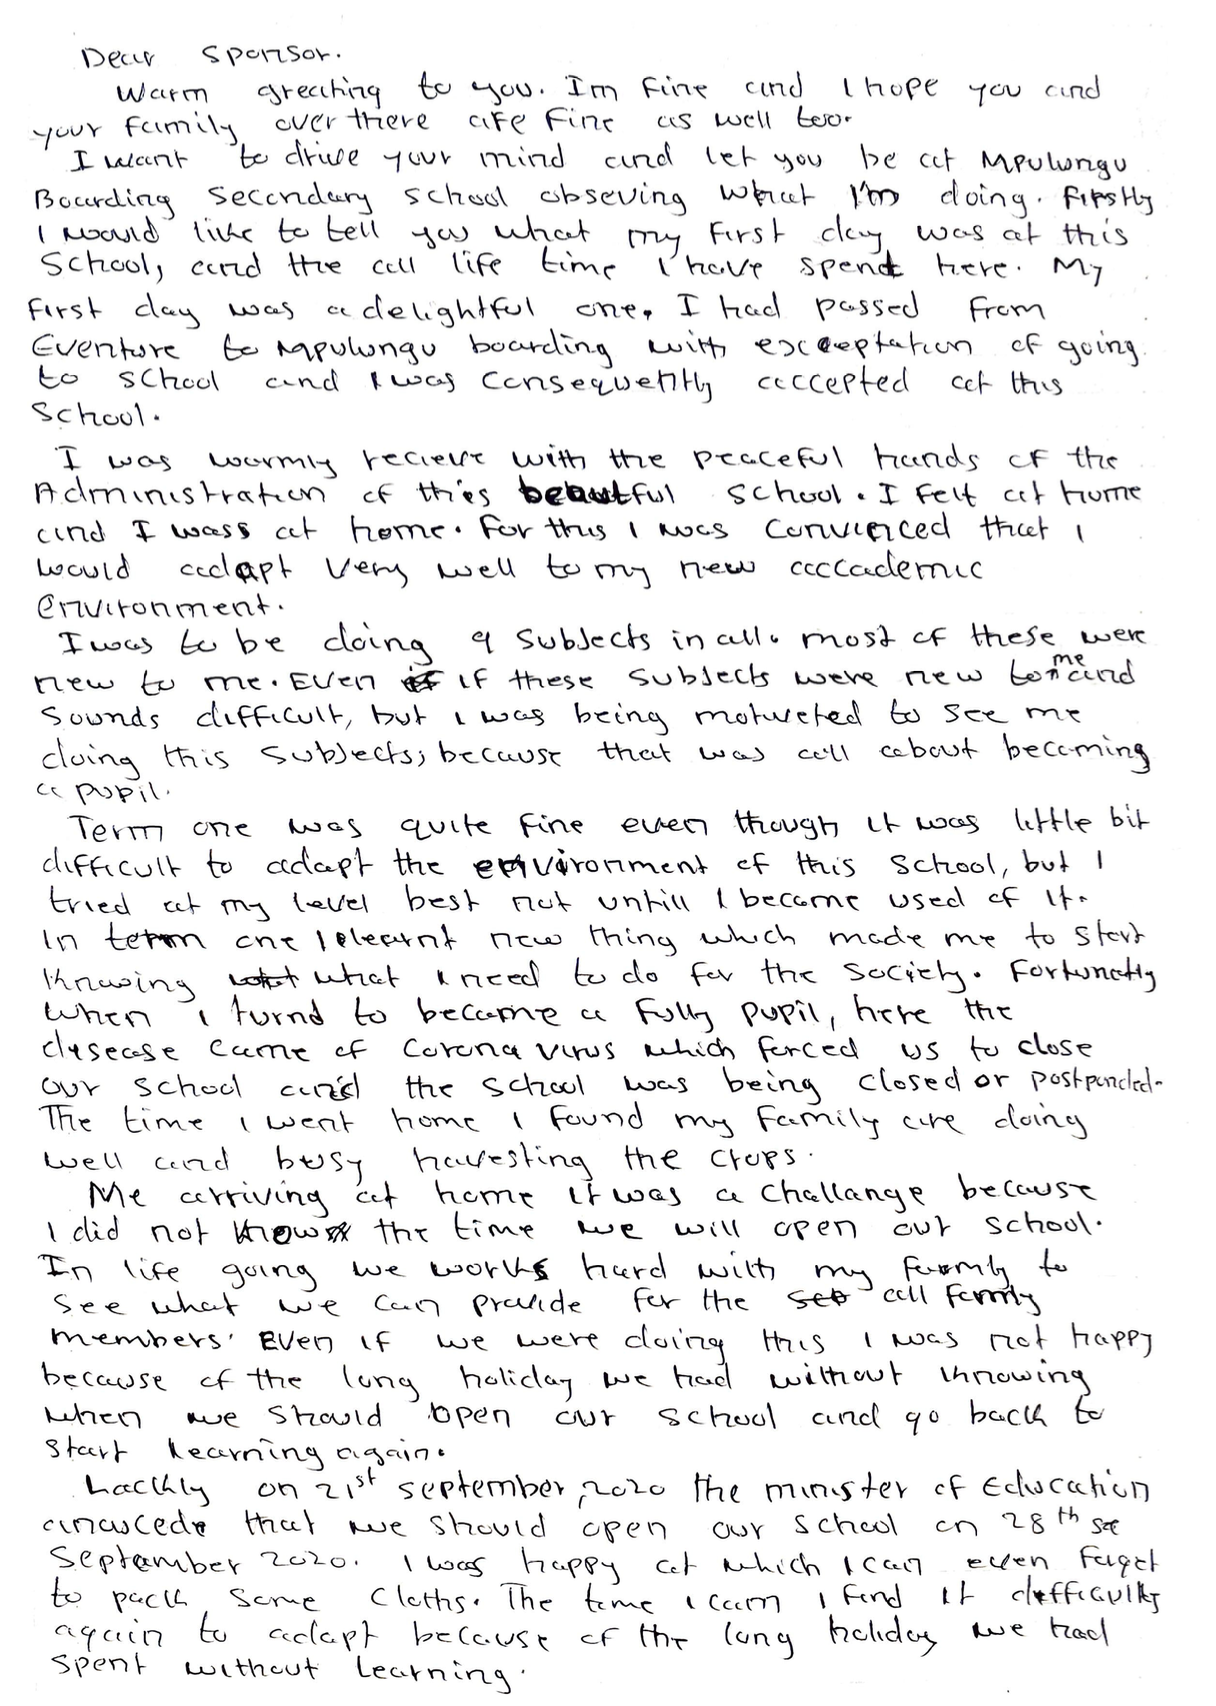 Dear Sponsor.
Warm greating to you. I'm fine and I hope you and
your family over there are fine as well too.
I want to drive your mind and let you be at Mpulungu
Boarding Secondary School obseving what I'm doing. Firstly
I would like to tell you what my first day was at this
School, and the all life time I have spent here. My
first day was a delightful one. I had passed from
Eventure to Mpulungu boarding with exceptation of going
to school and I was consequently accepted at this
School.
I was warmly recieve with the peaceful hands of the
Administration of this beautful school. I felt at home
and I wass at home. For this I was convinced that I
would adapt very well to my new accademic
environment.
I was to be doing 9 subjects in all. most of these were
new to me. Even if if these subjects were new to me and
sounds difficult, but I was being motiveted to see me
doing this subjects; because that was all about becoming
a pupil.
Term one was quite fine even though it was little bit
difficult to adapt the environment of this school, but I
tried at my level best not untill I become used of it.
In term one I learnt new thing which made me to start
knowing what I need to do for the society. Fortunatly
when I turnd to became a fully pupil, here the
dysease came of corona virus which forced us to close
our school and the school was being closed or postponded.
The time I went home I found my family are doing
well and busy havesting the crops.
Me arriving at home it was a challange because
I did not know the time we will open our school.
In life going we works hard with my family to
see what we can provide for the all family
members. Even if we were doing this I was not happy
because of the long holiday we had without knowing
when we should open our school and go back to
start learning again.
Lackly on 21st september, 2020 the minister of Education
anoucede that we should open our school on 28th se
September 2020. I was happy at which I can even faget
to pack some cloths. The time I cam I find it difficulty
again to adapt because of the long holiday we had
spent without learning.